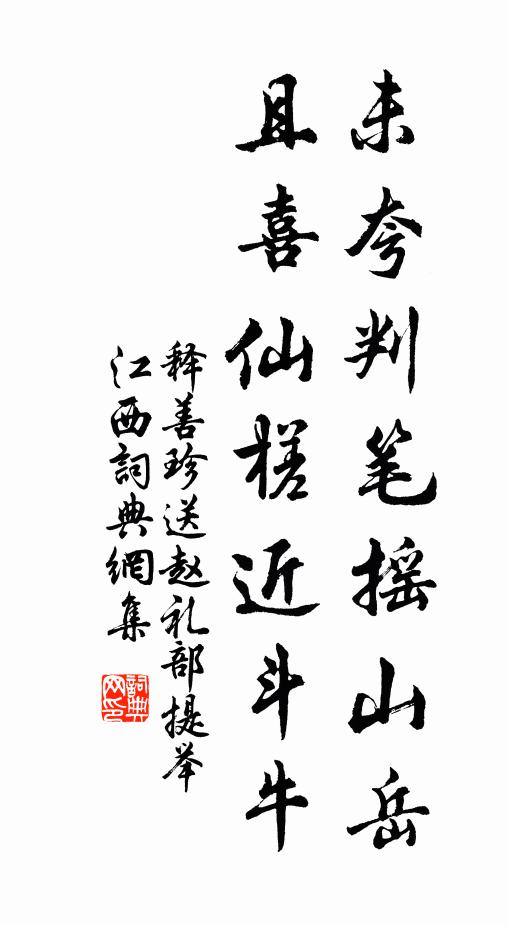 未夸判笔摇山岳
且喜仙槎近斗牛
释善珍送赵礼部提举
江西詞典網集
詞典
网印